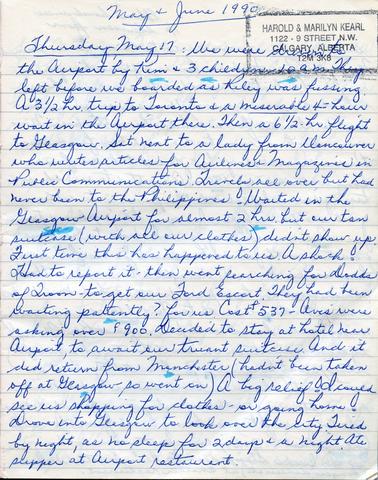 May & June 1990
HAROLD & MARILYN KEARL
1122 - 9 STREET N.W.
CALGARY, ALBERTA
T2M 3K8
Thursday May 17: We were
the Airport by Kim & 3 children 10 a.m. They
left before we boarded as Kiley was fussing
A 3 1/2 hr. trip to Toronto & a miserable 4 hour
wait in the Airport there. Then a 6 1/2 hr. flight
to Glasgow. Sat next to a lady from Vancouver
who writes articles for Airlines Magazines in
Public Communications. Travels all over but had
never been to the Philippines! Waited in the
Glasgow Airport for almost 2 hr. but our tan
suitcase (with all our clothes) didn't show up
First time this has happened to us. A shock!
Had to report it - then went searching for Dodds
of Troon - to get our Ford Escort. They had been
waiting patiently? for us Cost $537 - Avis were
asking over $900. Decided to stay at hotel near
Airport, to await our truant suitcase. And it
did return from Manchester (hadn't been taken
off at Glasgow so went on) A big relief! I could
see us shopping for clothes - or going home!
Drove into Glasgow to look over the City Tired
by night, as no sleep for 2 days & a night. Ate
supper at Airport restaurant.